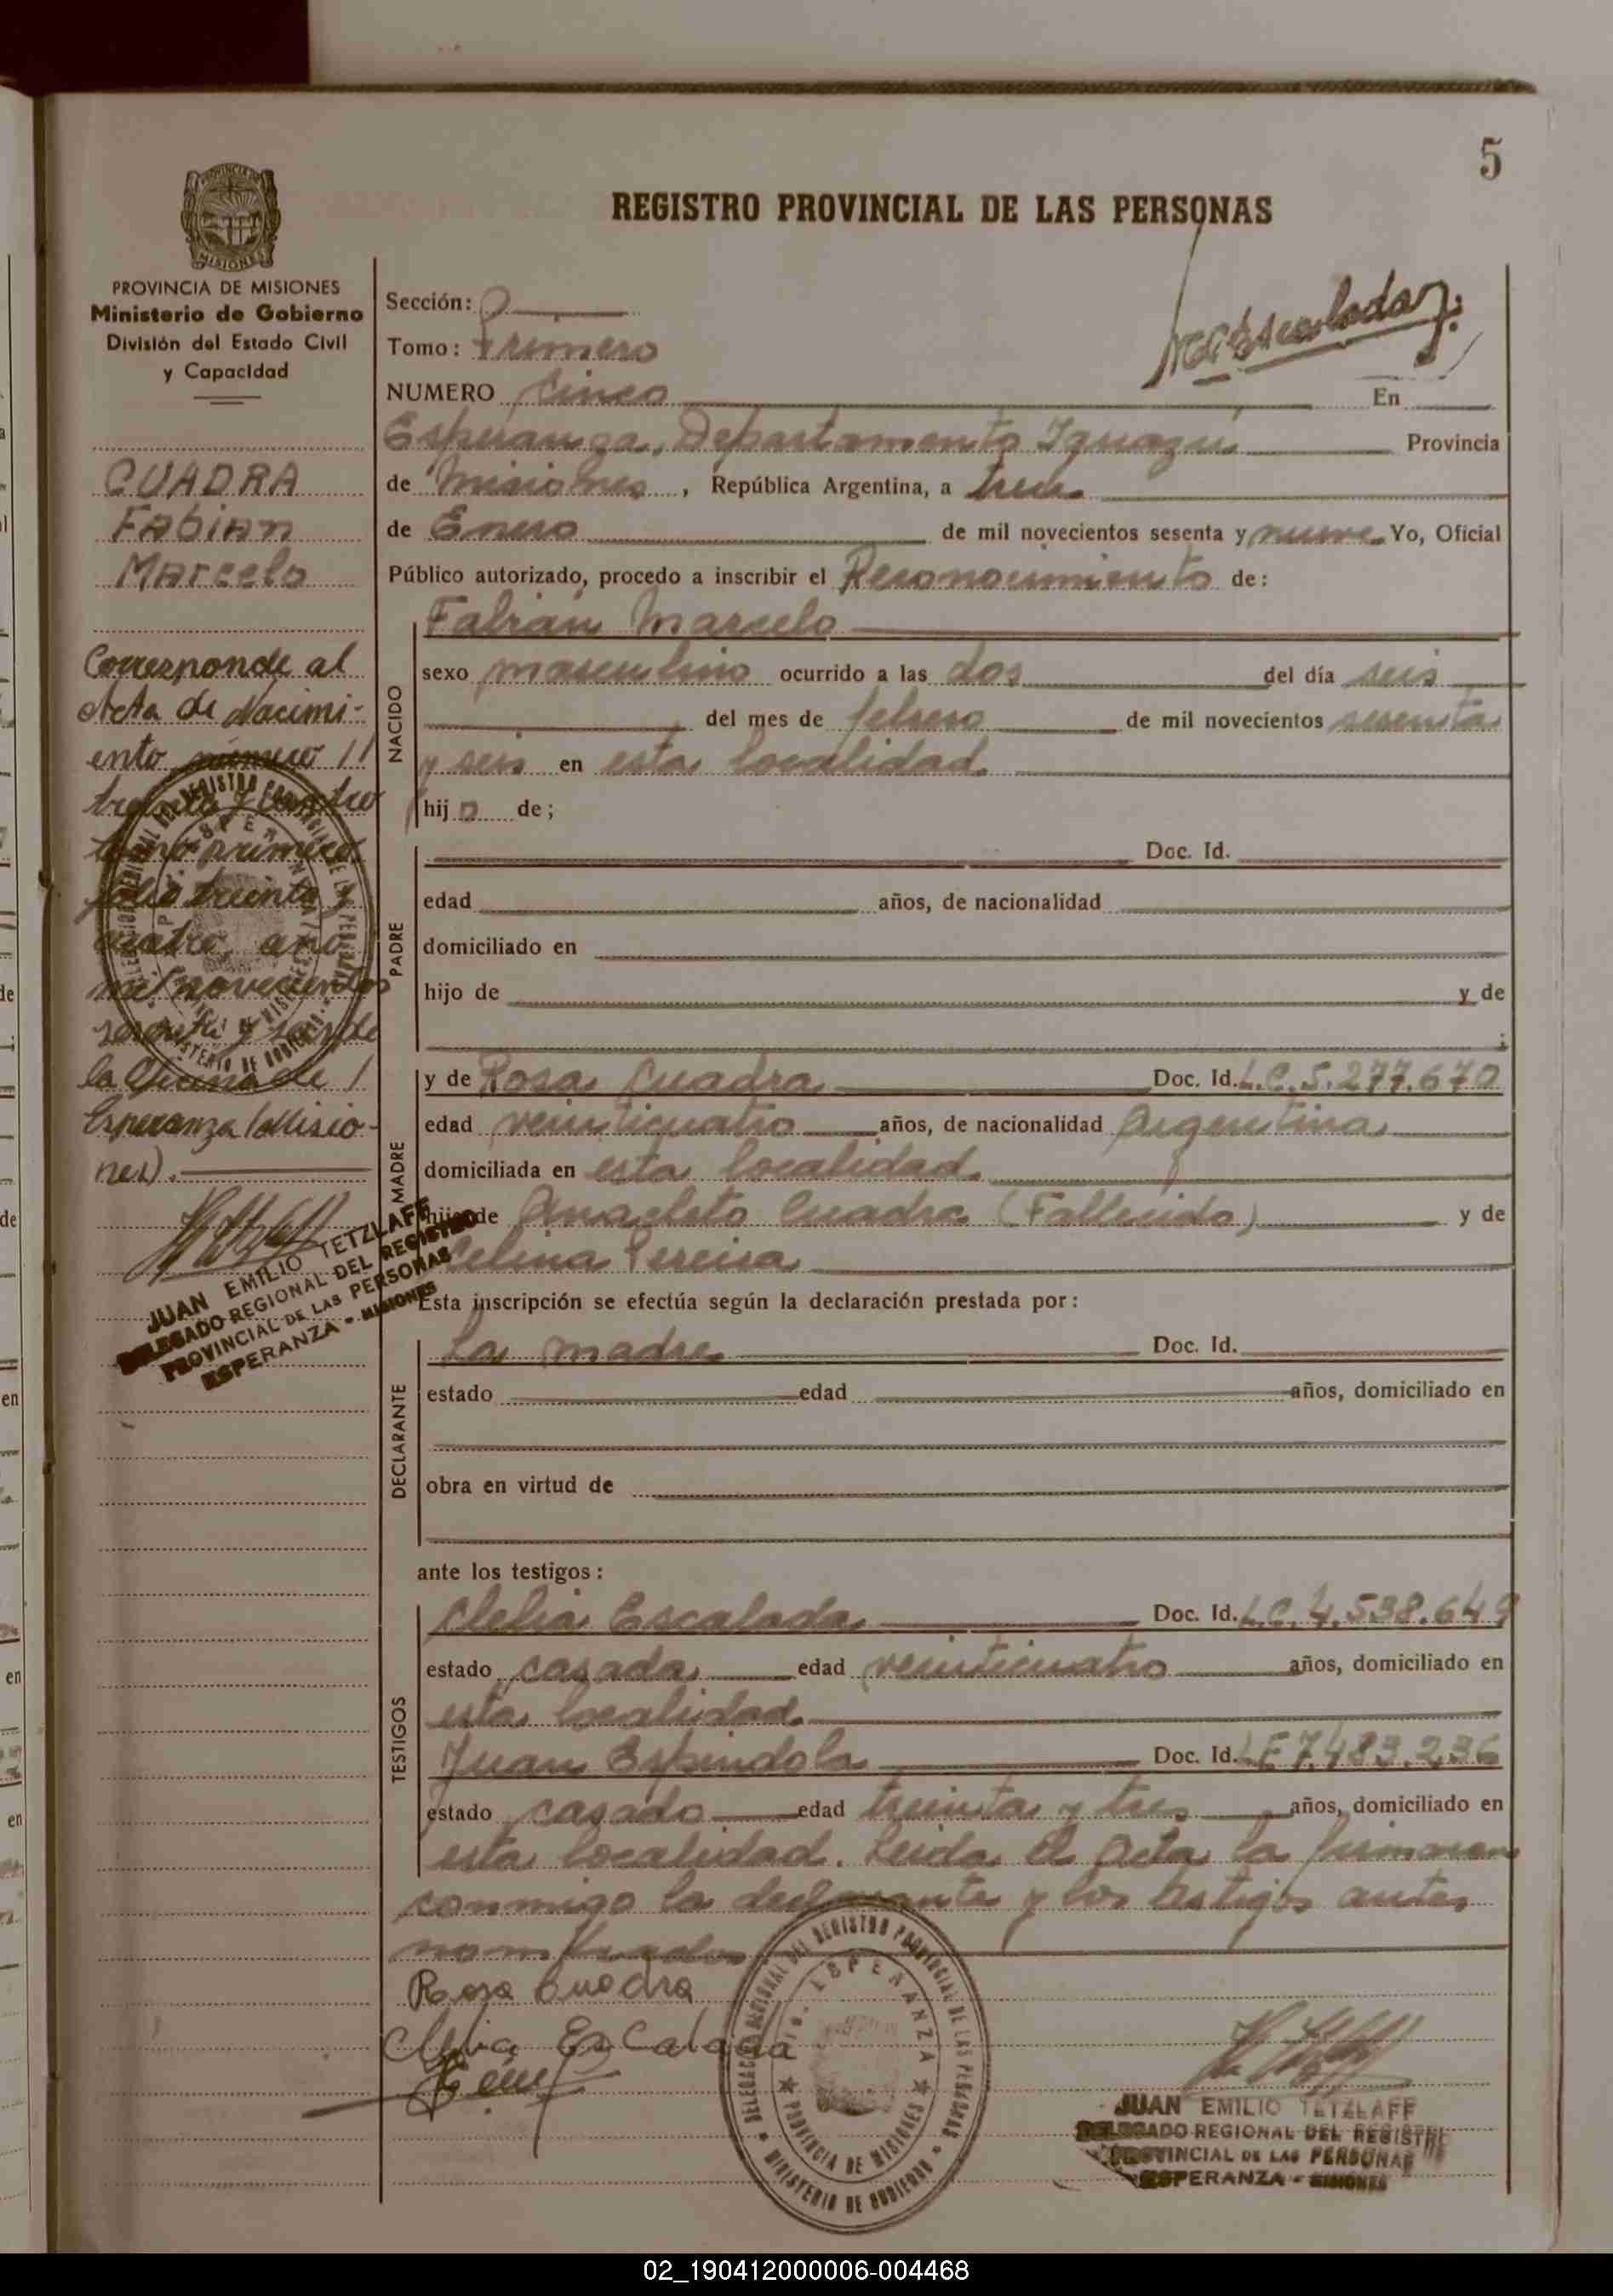 5
REGISTRO PROVINCIAL DE LAS PERSONAS
PROVINCIA DE MISIONES
Ministerio de Gobierno
División del Estado Civil
y Capacidad
CUADRA
Fabian
Marcelo
Corresponde al
Acta de Nacimi-
ento número
treinta y cuatro
tomo primero
folio treinta y
cuatro, año
mil novecientos
sesenta y seis de
la Oficina de
Esperanza (Misio-
nes).
JUAN EMILIO TETZLAFF
DELEGADO REGIONAL DEL REGISTRO
PROVINCIAL DE LAS PERSONAS
ESPERANZA - MISIONES
Sección:
Tomo: Primero
NUMERO Cinco En
Esperanza, Departamento Iguazú Provincia
de Misiones, República Argentina, a trece
de Enero de mil novecientos sesenta y nueve Yo, Oficial
Público autorizado, procedo a inscribir el Reconocimiento de:
NACIDO
Fabián Marcelo
sexo masculino ocurrido a las dos del día seis
del mes de febrero de mil novecientos sesenta
y seis en esta localidad
hijo de;
PADRE
Doc. Id.
edad años, de nacionalidad
domiciliado en
hijo de y de
;
MADRE
y de Rosa Cuadra Doc. Id. L.C. 5.277.670
edad veinticuatro años, de nacionalidad Argentina
domiciliada en esta localidad
hija de Anacleto Cuadra (Fallecido) y de
Celina Pereira
Esta inscripción se efectúa según la declaración prestada por:
DECLARANTE
La madre Doc. Id.
estado edad años, domiciliado en
obra en virtud de
ante los testigos:
TESTIGOS
Clelia Escalada Doc. Id. L.C. 4.538.649
estado casada edad veinticuatro años, domiciliado en
esta localidad
Juan Espindola Doc. Id. L.E 7.483.236
estado casado edad treinta y tres años, domiciliado en
esta localidad. Leida el Acta la firmaron
conmigo la declarante y los testigos antes
nombrados
Rosa Cuadra
Clelia Escalada
DELEGACION REGIONAL DEL REGISTRO PROVINCIAL DE LAS PERSONAS
ESPERANZA
PROVINCIA DE MISIONES
MINISTERIO DE GOBIERNO
JUAN EMILIO TETZLAFF
DELEGADO REGIONAL DEL REGISTRO
PROVINCIAL DE LAS PERSONAS
ESPERANZA - MISIONES
02_190412000006-004468